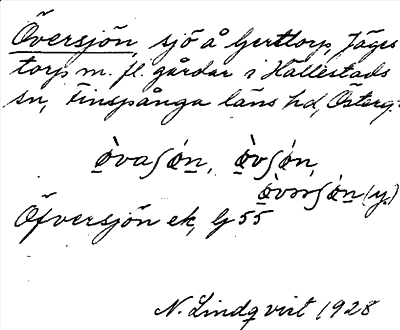 Översjön, sjö å Gerttorp, Jäges
torp m. fl. gårdar i Hällestads
sn, Finspånga läns hd, Österg.
ò̱vaʃö́n, ò̱vʃö́n,
ò̱vərʃö́n (y.)
Öfversjön ek, G 55
N. Lindqvist 1928